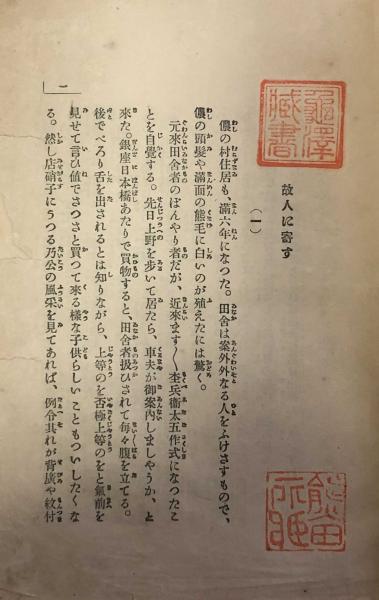 龜澤
臧書
故人に寄す
(一)
儂の村住居も、滿六年になつた。田舍は案外外なる人をふけさすもので、
儂の頭髮や滿面の熊毛に白いのが殖えたには驚く。
元來田舍者のぼんやり者だが、近來ます〱杢兵衞太五作式になつたこ
とを自覺する。先日上野を歩いて居たら、車夫が御案內しましやうか、と
來た。銀座日本橋あたりで買物すると、田舍者扱ひされて每々腹を立てる。
後でぺろり舌を出されるとは知りながら、上等のを否極上等のをと氣前を
見せて言ひ値でさつさと買つて來る樣な子供らしいこともついしたくな
る。然し店硝子にうつる乃公の風采を見てあれば、例令其れが背廣や紋付
一